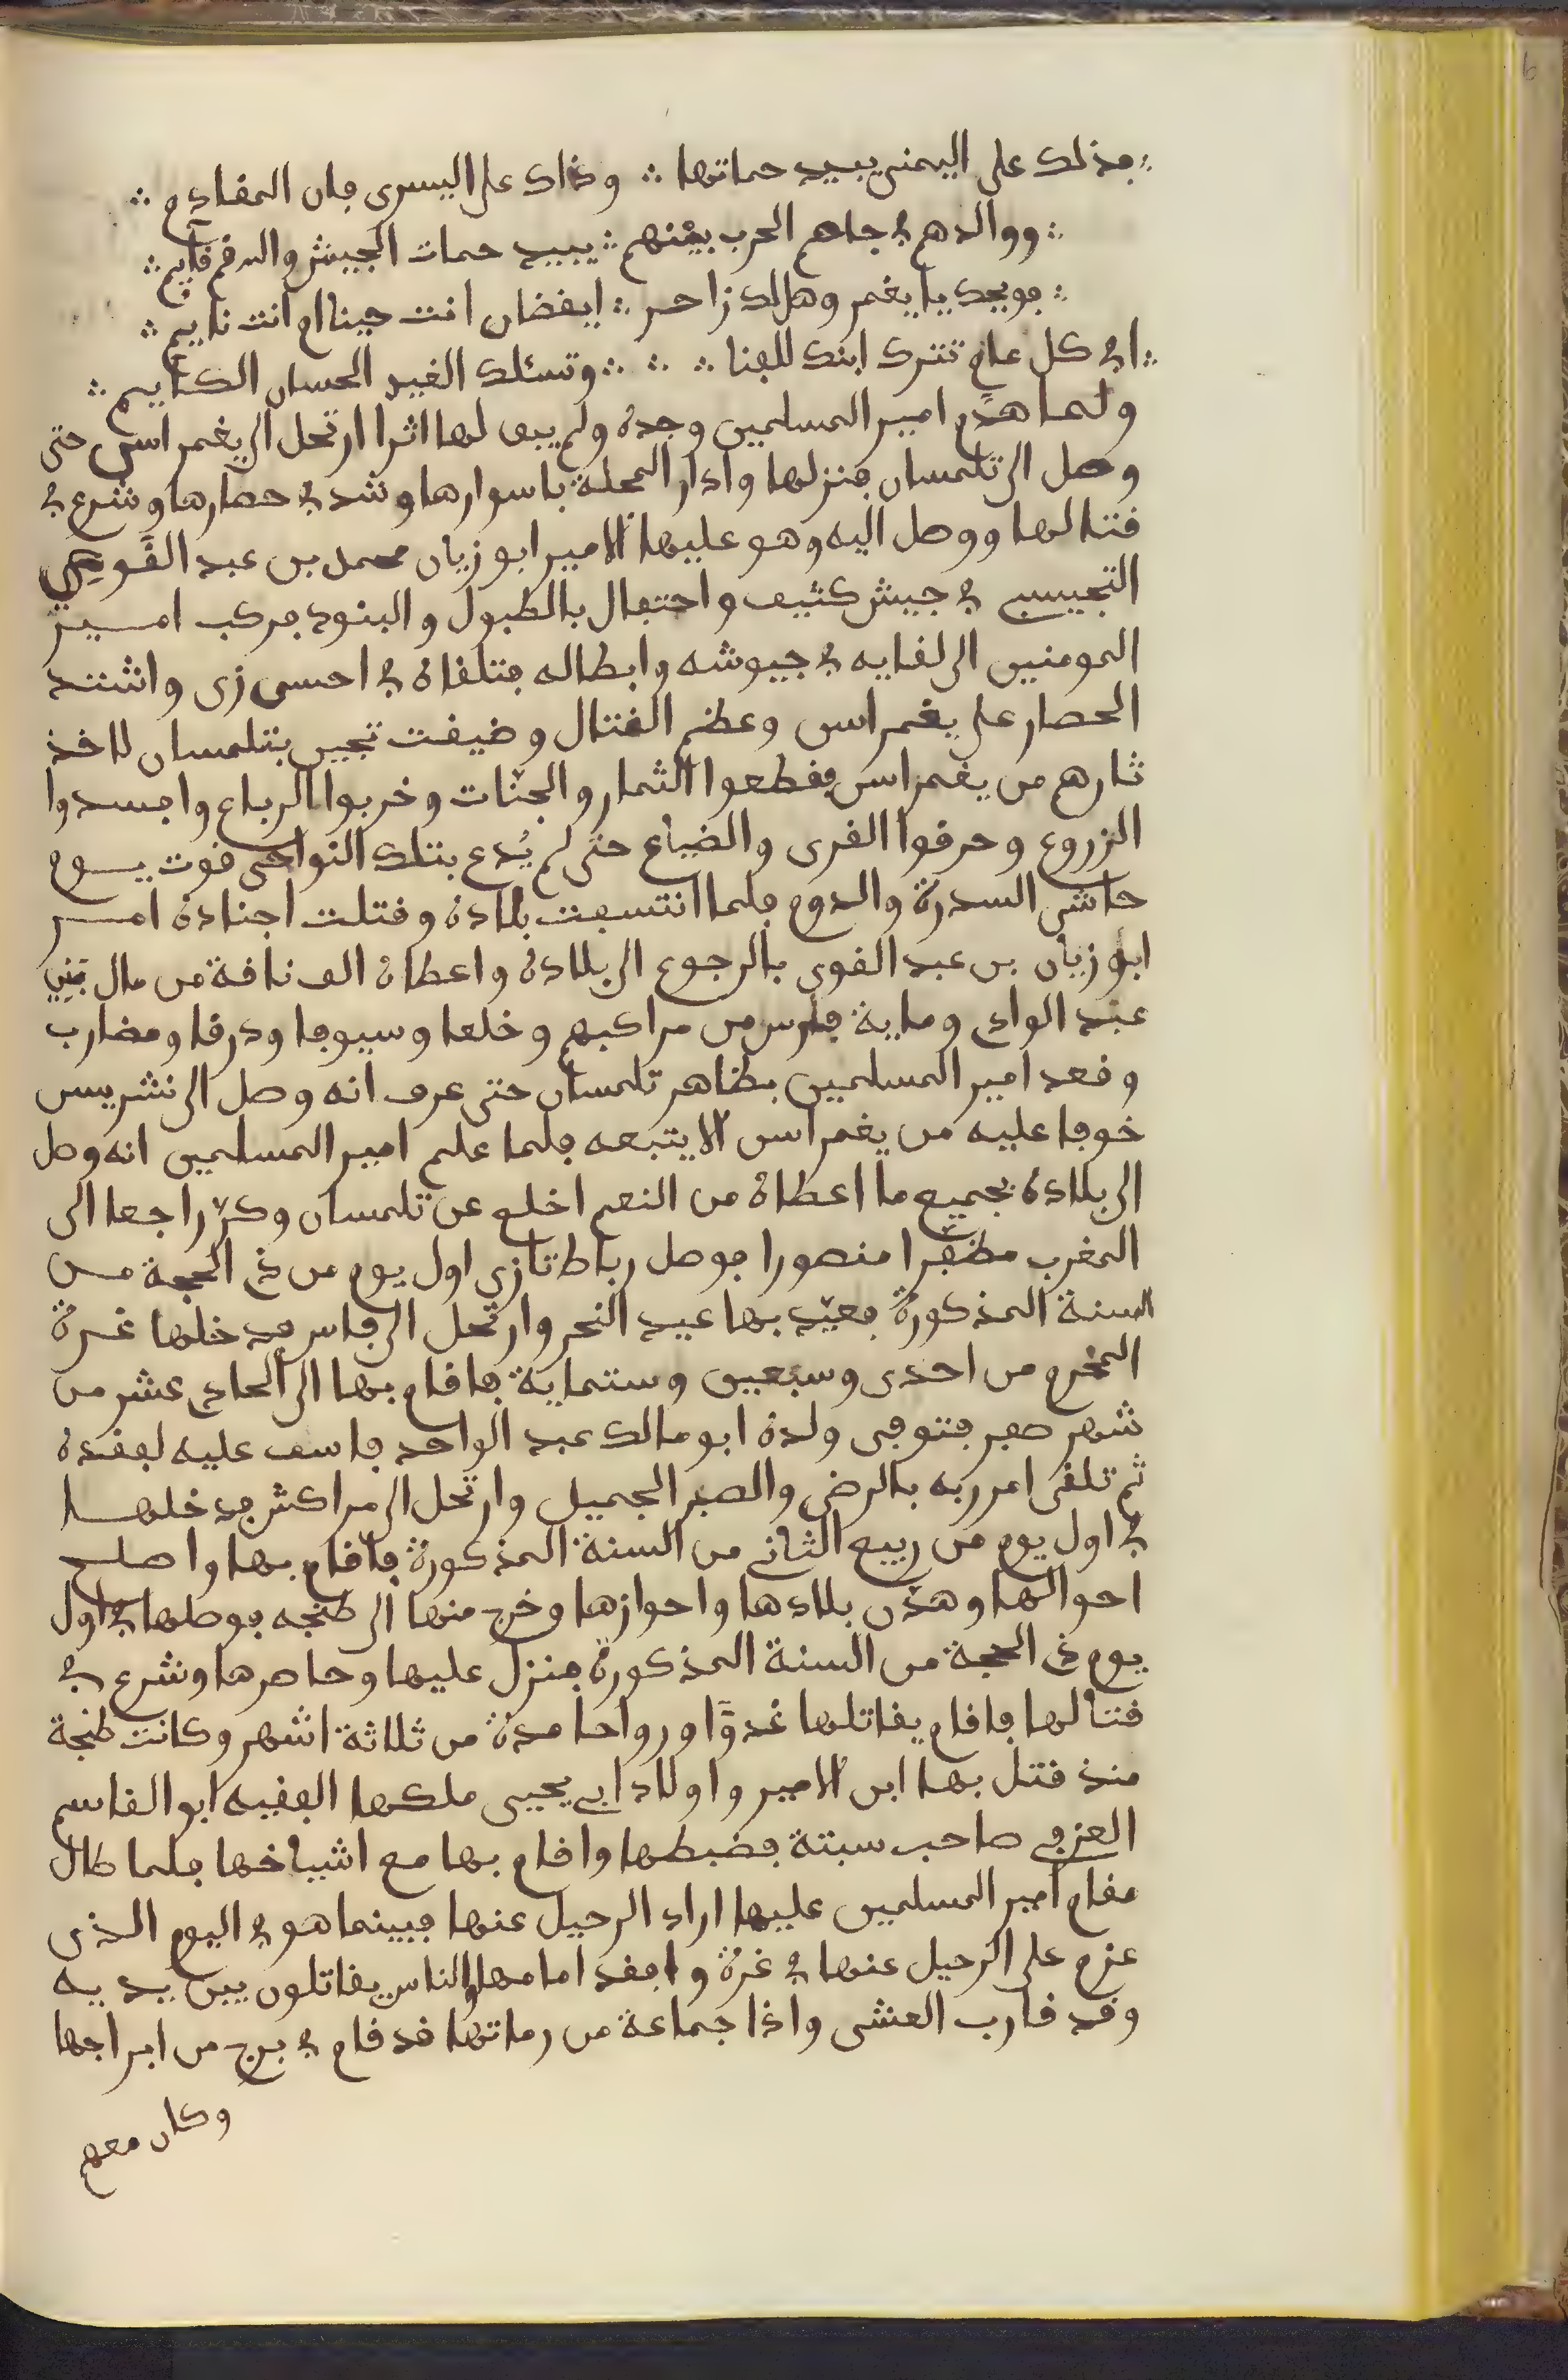 ∴ فذلك على اليمنى يبيد حماتها ∴ وذاك على اليسرى فان المقادم ∴
∴ ووالدهم في جاهم الحرب بينهم ∴ يبيد حمات الجيش والدقم قايم ∴
∴ فويحك يا يغمر وهل لك زاحر ∴ ايقضان انت حينا ام انت نايم ∴
∴ افي كل عام تترك ابنك للقنا ∴ ∴ ∴ وتسئلك الغيد الحسان الكرايم ∴
ولما هدّم امير المسلمين وجدة ولم يبق لها اثرا ارتحل الى يغمراسن حتى
وصل الى تلمسان فنزلها وادار المحلة باسوارها وشد في حصارها وشرع في
قتالها ووصل اليه وهو عليها الامير ابو زيان محمد بن عبد القَوي
التجيبي في جيش كثيف واحتفال بالطبول والبنود فركب امير
المومنين الى لقايه في جيوشه وابطاله فتلقاه في احسن زى واشتد
الحصار على يغمراسن وعظم القتال وضيفت تجين بتلمسان لاخذ
ثارهم من يغمراسن فقطعوا الثمار والجنّات وخربوا الرباع وافسدوا
الزروع وحرقوا القرى والضياع حتى لم يُدع بتلك النواحى قوت يوم
حاشى السدرة والدوم فلما انتسفت بلاده وقتلت اجناده امر
ابو زيان بن عبد القوى بالرجوع الى بلاده واعطاه الف ناقة من مال بني
عبد الوادي ومايه فارس من مراكبهم وخلعا وسيوفا ودرقا ومضارب
وقعد امير المسلمين بظاهر تلمسان حتى عرف انه وصل الى نشريس
خوفا عليه من يغمراسن الا يتبعه فلما علم امير المسلمين انه وصل
الى بلاده بجميع ما اعطاه من النعم اخلع عن تلمسان وكرّ راجعا الى
المغرب مظفّرا منصورا فوصل رباط تازي اول يوم من ذي الحجة من
السنة المذكورة فعيّد بها عيد النحر وارتحل الى فاس فدخلها غرة
المحرم من احدى وسبعين وستماية فاقام بها الى الحادي عشر من
شهر صفر فتوفى ولده ابو مالك عبد الواحد فاسف عليه لفقده
ثم تلقى امر ربه بالرضى والصبر الجميل وارتحل الى مراكش فدخلها
في اول يوم من ربيع الثاني من السنة المذكورة فاقام بها واصلح
احوالها وهدّن بلادها واحوازها وخرج منها الى طنجه فوصلها في اول
يوم ذي الحجة من السنة المذكورة فنزل عليها وحاصرها وشرع في
قتالها فاقام يقاتلها غدوًّا ورواحا مدة من ثلاثة اشهر وكانت طنجة
منذ قتل بها ابن الامير واولاد ابي يحيى ملكها الفقيه ابو القاسم
العزفي صاحب سبتة فضبطها واقام بها مع اشياخها فلما طال
مقام امير المسلمين عليها اراد الرحيل عنها فبينما هو في اليوم الذى
عزم على الرحيل عنها في غرة وافقد امامها والناس يقاتلون بين يديه
وقد قارب العشى واذا جماعة من رماتها قد قام في برج من ابراجها
وكان معهم